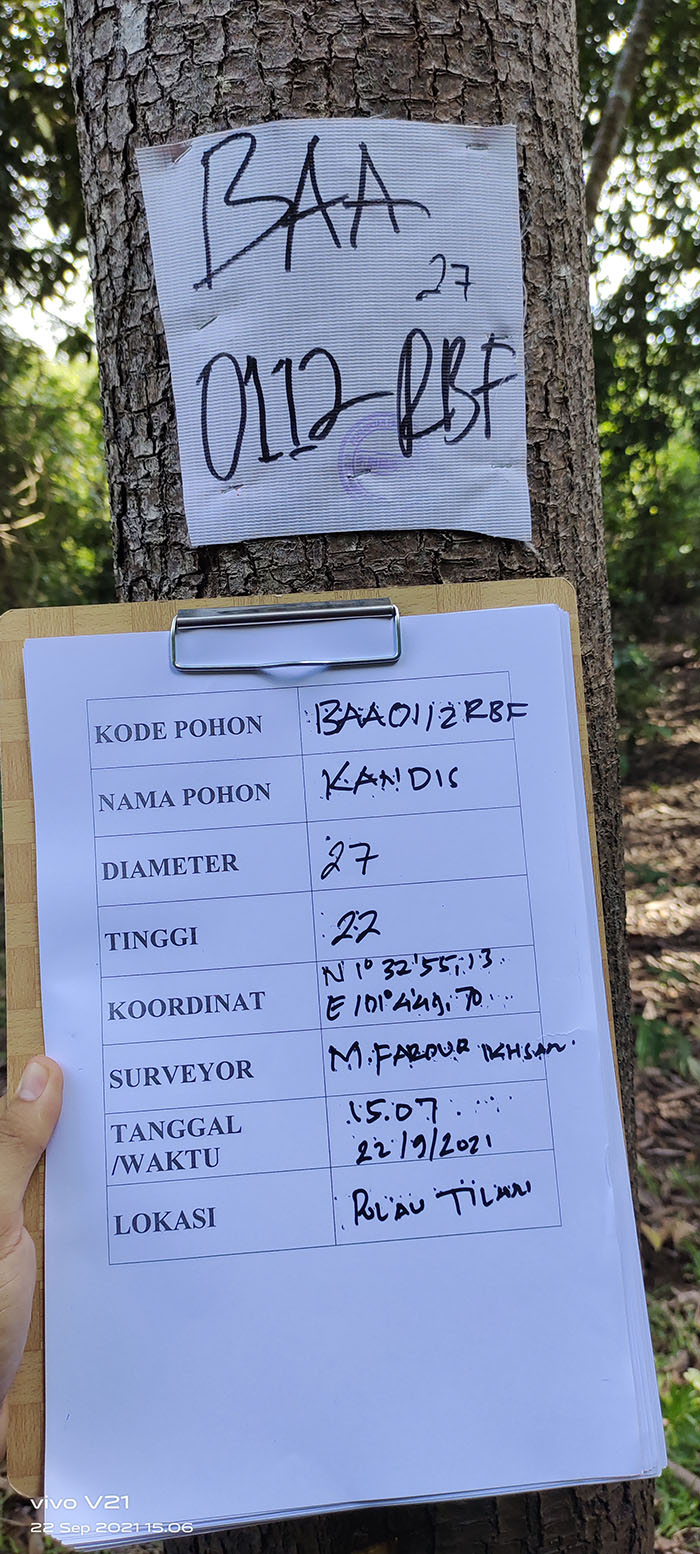 BAA
27
0112-RBF
KODE POHON BAA0112RBF
NAMA POHON KANDIS
DIAMETER 27
TINGGI 22
KOORDINAT N 1° 32'55,13
E 101°4'49,70
SURVEYOR M.FAROUR IKHSAN
TANGGAL 15.07
/WAKTU 22/9/2021
LOKASI PULAU TILAN
vivo V21
22 Sep 2021 15.06